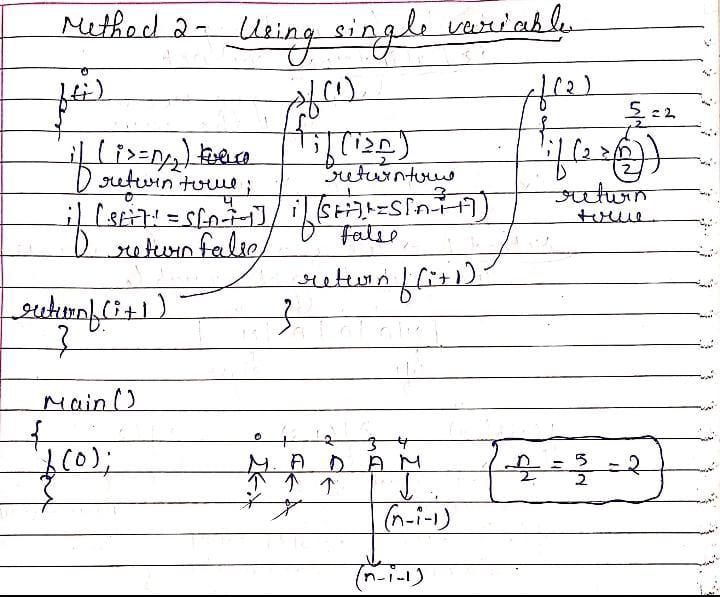 Method 2 - Using single variable
0
f(i)
{
if (i>=n/2) true
return true;
0 4
if (s[i]! = s[n-i-1]
return false
return f(i+1)
}
f(1)
{
if (i≥n/2)
return true
1 3
if (s[i]!=s[n-i-1])
false
return f(i+1)
}
f(2)
{
5/2 = 2
if (2 ≥ n/2)
return
true
Main()
{
f(0);
}
0 1 2 3 4
M A D A M
↑ ↑ ↑ ↓
i i
(n-i-1)
(n-i-1)
n/2 = 5/2 = 2